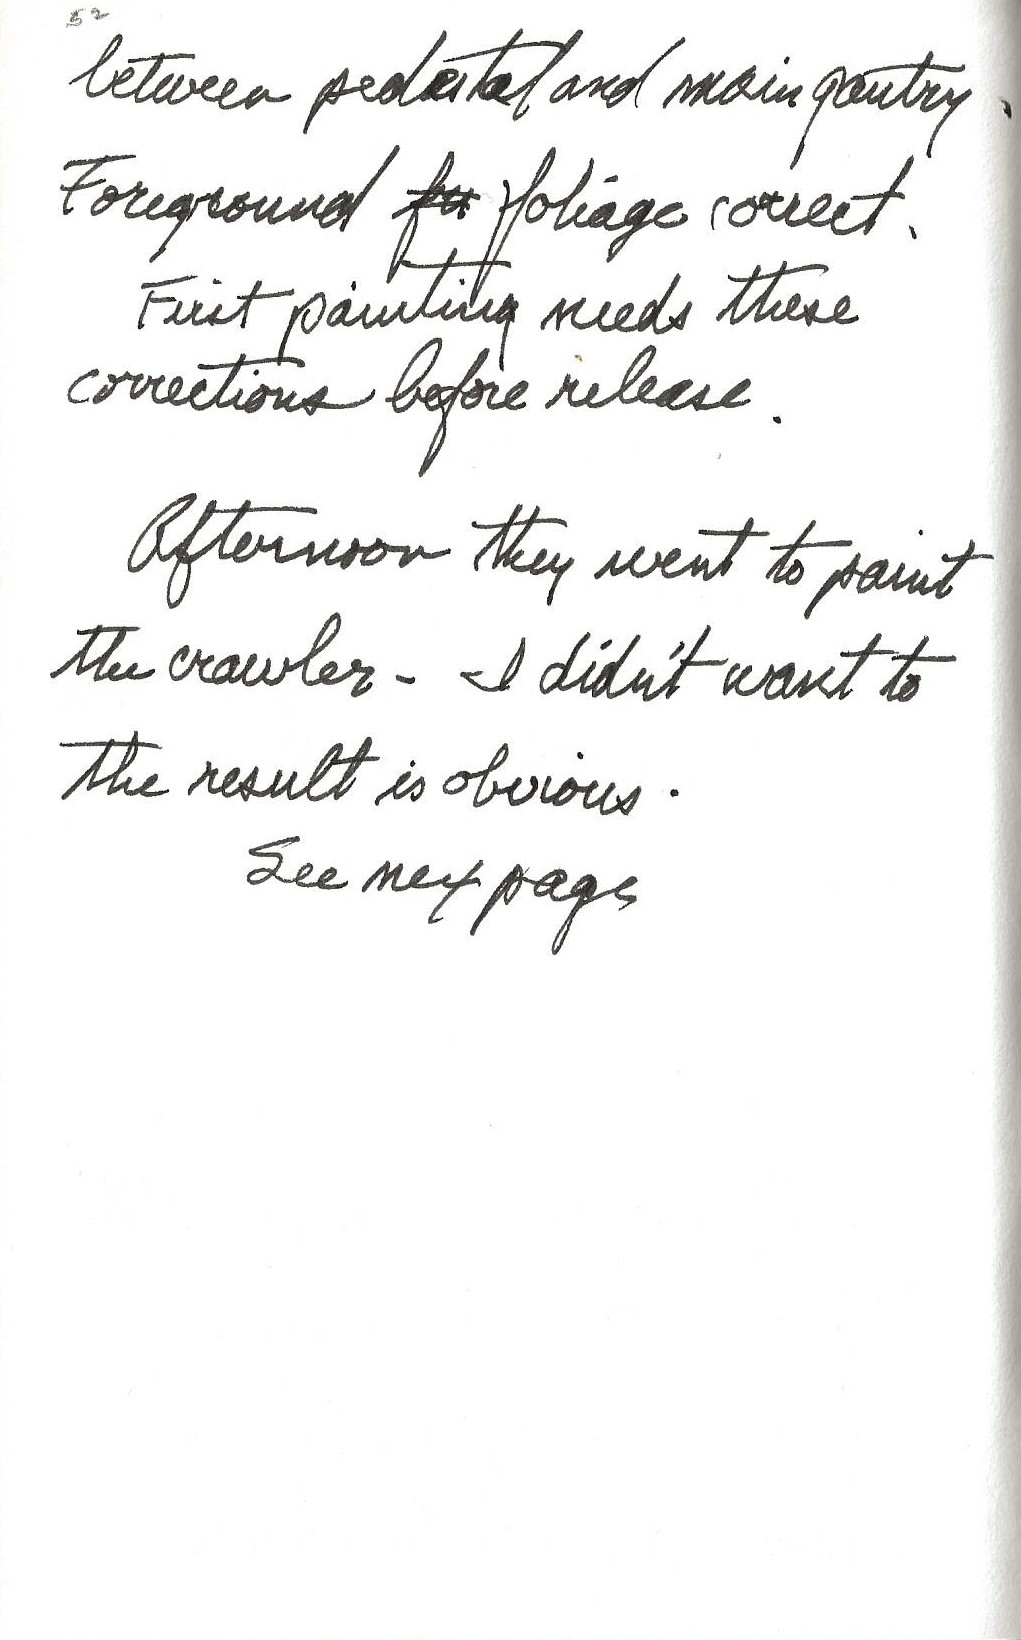 52
between pedestal and main gantry.
Foreground fu foliage correct.
First painting needs these
corrections before release.
Afternoon they went to paint
the crawler - I didn't want to
the result is obvious.
See nex page